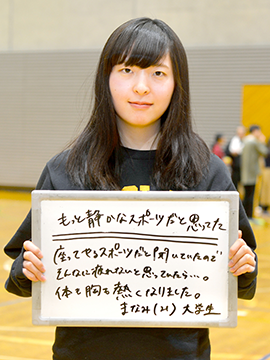 もっと静かなスポーツだと思ってた
座ってやるスポーツだと聞いていたので
そんなに疲れないと思ってたら…。
体も胸も熱くなりました。
まなみ(21) 大学生